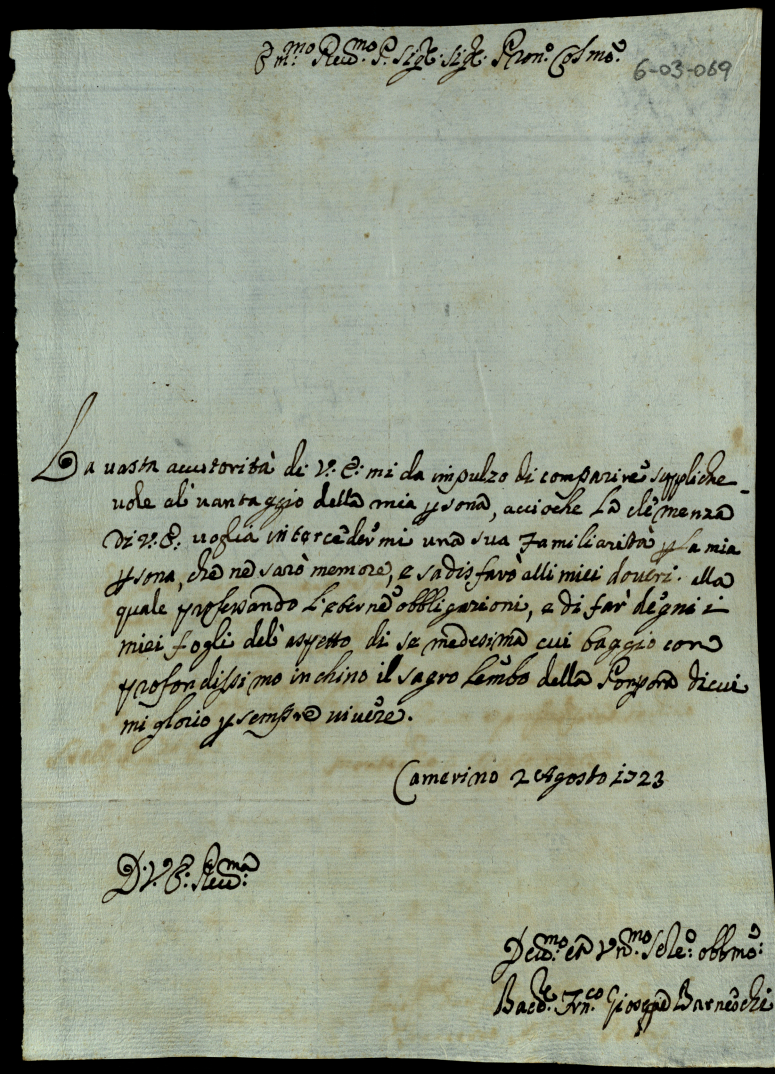 E.mo Reu.mo P. Sig.e Sig.e P.ron.e Col.mo
6-03-069
La uasta auttorità di V: E: mi da impulzo di comparire suppliche-
uole al' uantaggio della mia psona, accioche La clemenza
di V: E: uoglia intercedermi una sua Familiarità p la mia
psona, che ne sarò memore, e sadisfarò alli miei doueri. alla
quale professando l'eterne obbligazioni, e di far' degni i
miei fogli del' aspetto di se medesima cui baggio con
profondissimo inchino il sagro Lembo della Porpora di cui
mi glorio p sempre uiuere.
Camerino 2 Agosto 1723
D: V: E: Reu.ma
Deu.mo et V.mo obb.mo:
Giuseppe